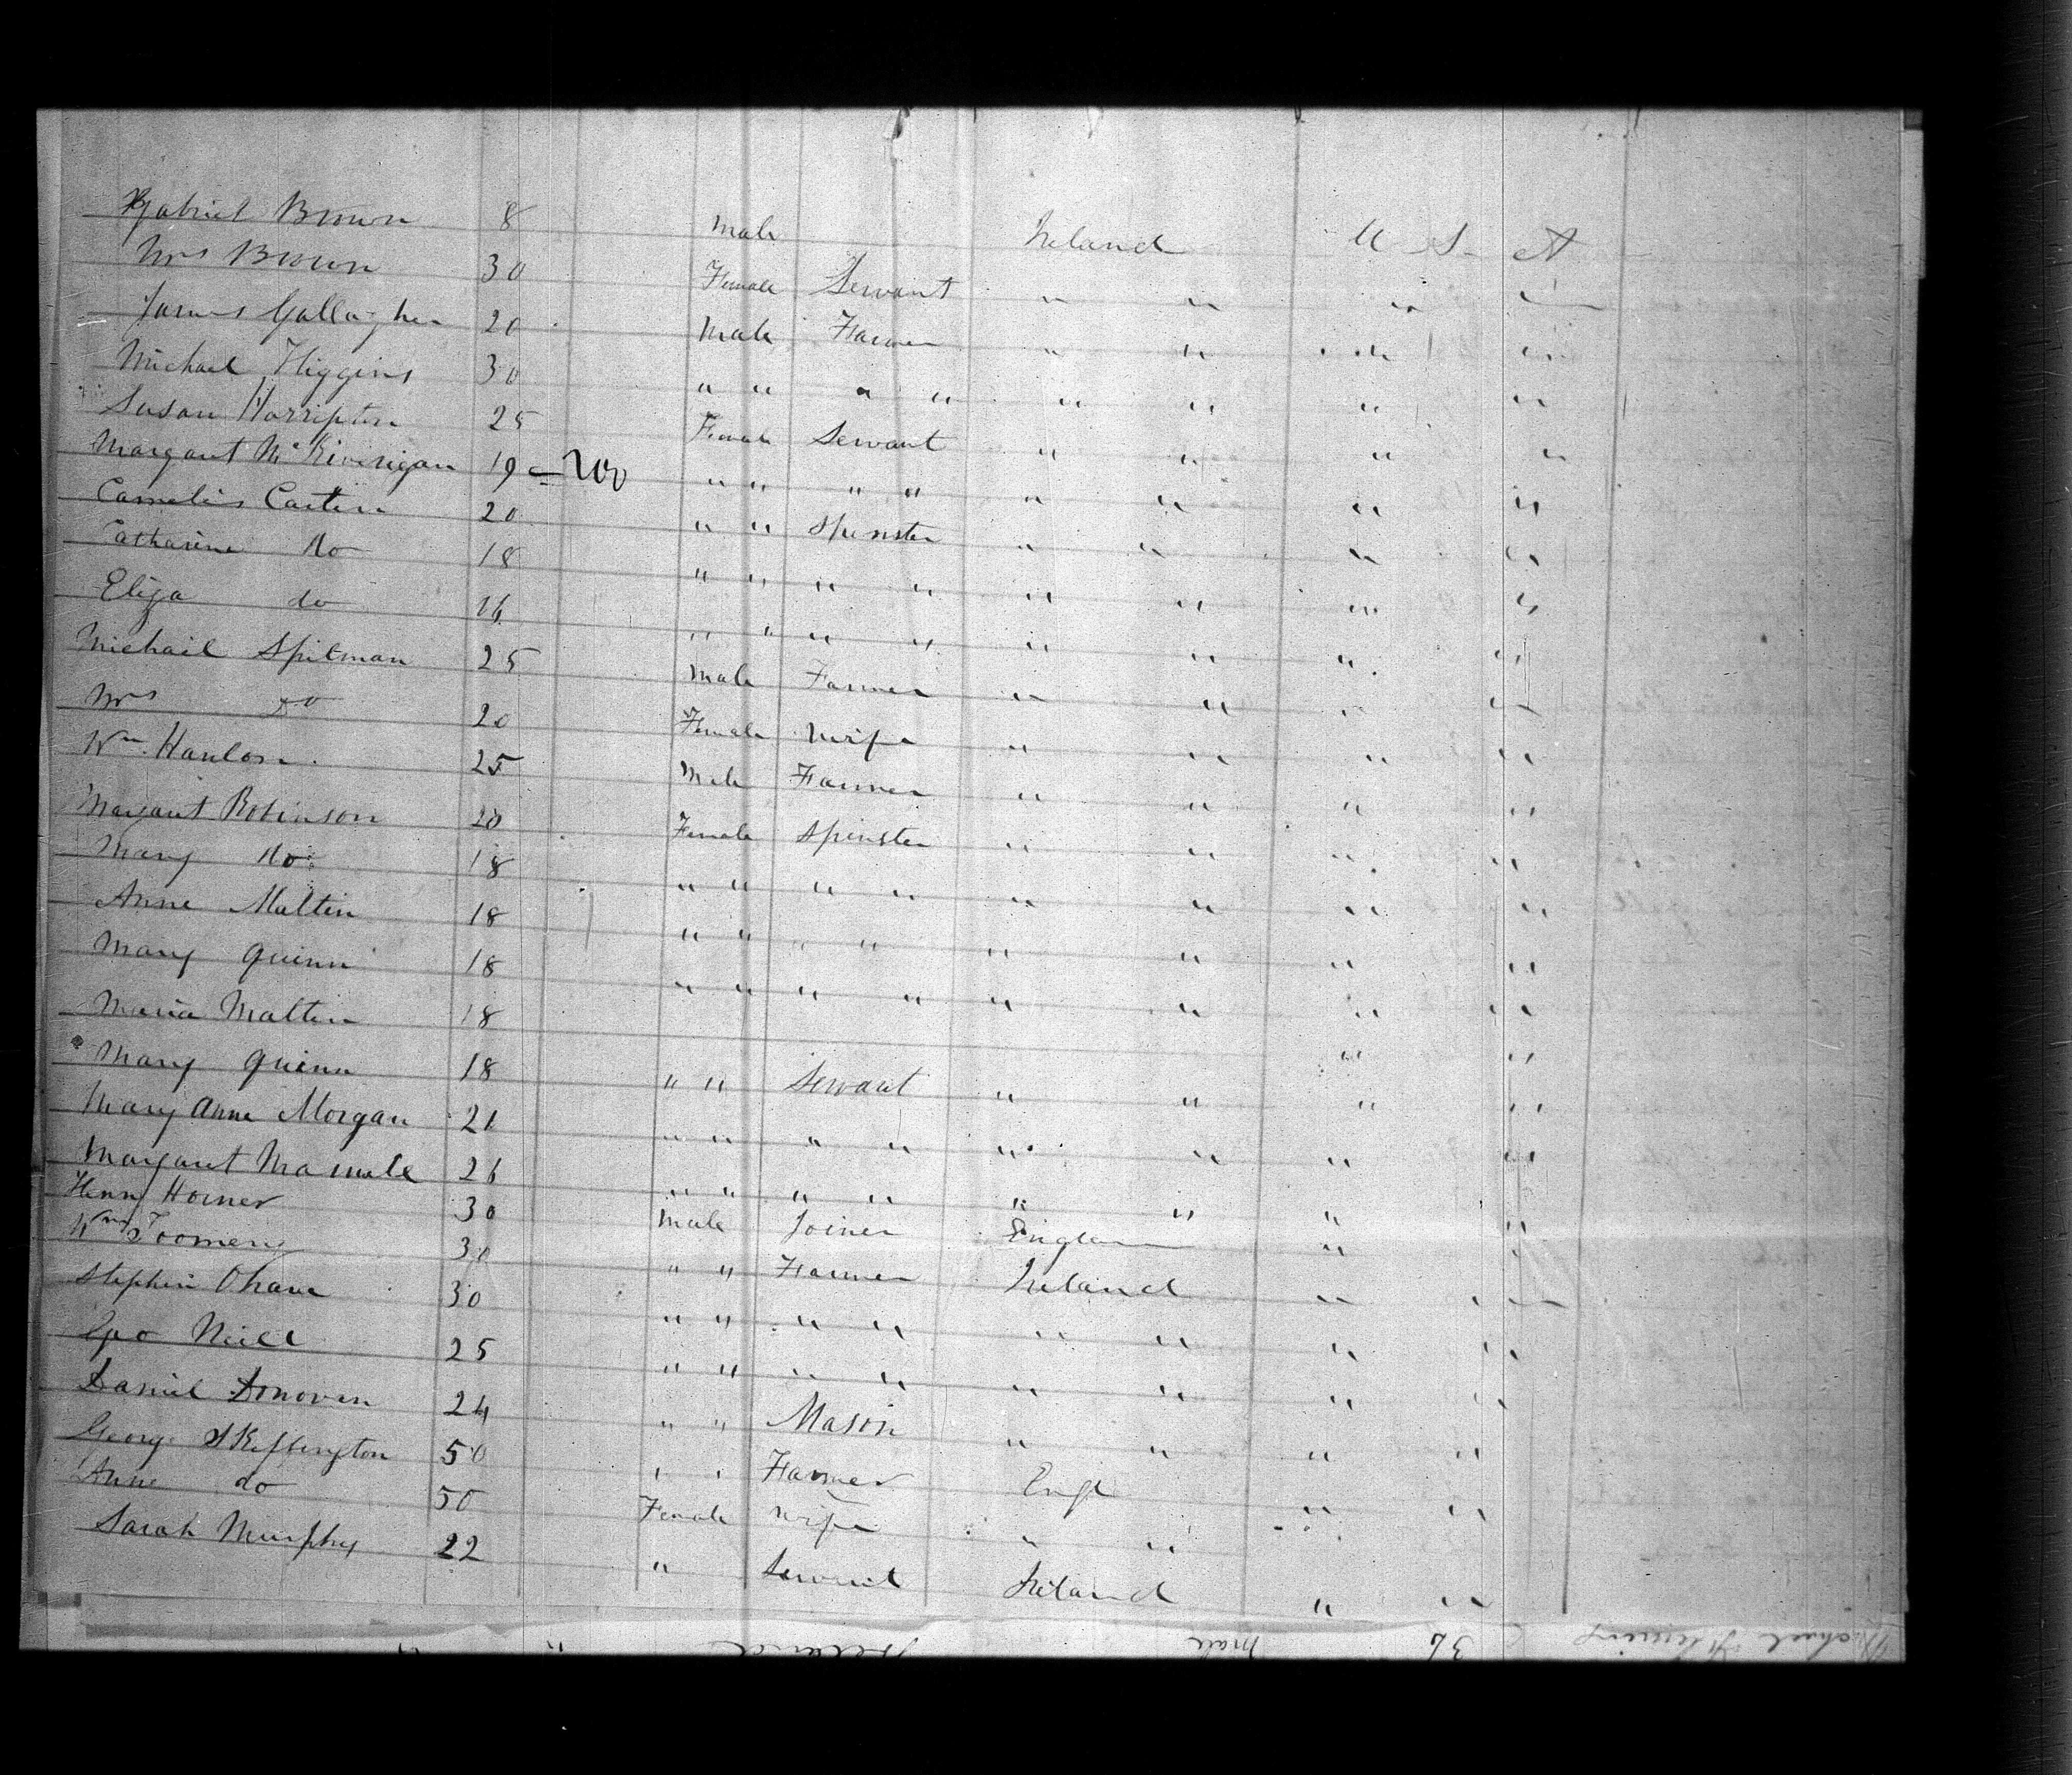 Gabriel Brown 8 Male Ireland U S A
Mrs Brown 30 Female Servant " " " "
James Gallagher 20 Male Farmer " " " "
Michael Higgins 30 " " " " " " " "
Susan 25 Female Servant " " " "
Margaret 19 " " " " " " " "
Carter 20 " " Spinster " " " "
Catharine do 18 " " " " " " " "
Eliza do 16 " " " " " " " "
Michail Spilman 25 Male Farmer " " " "
Mrs Do 20 Female Wife " " " "
Wm Hanlon 25 Male Farmer " " " "
Margaret Robinson 20 Female Spinster " " " "
Mary do 18 " " " " " " " "
Anne Maltin 18 " " " " " " " "
Mary Quinn 18 " " " " " " " "
Maria Maltin 18 " "
Mary Quinn 18 " " Servant " " " "
Mary Anne Morgan 21 " " " " " " " "
Margaret 26 " " " " " " " "
Henry Horner 30 Male Joiner England " "
Wm Toomey 30 " " Farmer Ireland " "
Stephen Ohara 30 " " " " " " " "
Geo Neill 25 " " " " " " " "
Daniel Donoven 24 " " Mason " " " "
George Skeffington 50 " " Farmer Engl " "
Anne do 50 Female Wife " " " "
Sarah Murphy 22 " Servant Ireland " "
Michael Fleming 36 Male Ireland " "